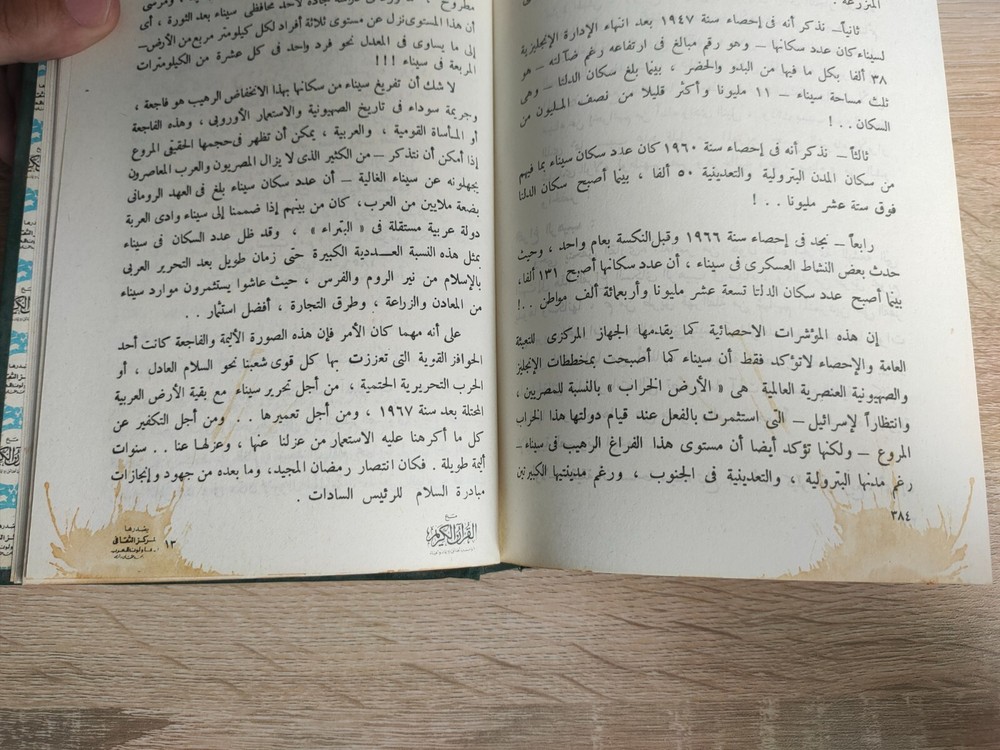 المزرعة .
ثانياً – نذكر أنه فى إحصاء سنة ١٩٤٧ بعد انتهاء الإدارة الإنجليزية
لسيناء كان عدد سكانها – وهو رقم مبالغ فى ارتفاعه رغم ضآلته – هو
٣٨ ألفا بكل ما فيها من البدو والحضر ، بينما بلغ سكان الدلتا – وهى
ثلث مساحة سيناء – ١١ مليونا وأكثر قليلا من نصف المليون من
السكان . . !
ثالثاً – نذكر أنه فى إحصاء سنة ١٩٦٠ كان عدد سكان سيناء بما فيهم
من سكان المدن البترولية والتعدينية ٥٠ ألفا ، بينما أصبح سكان الدلتا
فوق ستة عشر مليونا . . !
رابعاً – نجد فى إحصاء سنة ١٩٦٦ وقبل النكسة بعام واحد ، وحيث
حدث بعض النشاط العسكرى فى سيناء ، أن عدد سكانها أصبح ١٣١ ألفا،
بينما أصبح عدد سكان الدلتا تسعة عشر مليونا وأربعمائة ألف مواطن . .!
إن هذه المؤشرات الاحصائية كما يقدمها الجهاز المركزى للتعبئة
العامة والإحصاء لاتؤكد فقط أن سيناء كما أصبحت بمخططات الإنجليز
والصهيونية العنصرية العالمية هى « الأرض الخراب » بالنسبة للمصريين ،
وانتظاراً لإسرائيل – التى استثمرت بالفعل عند قيام دولتها هذا الخراب
المروع – ولكنها تؤكد أيضا أن مستوى هذا الفراغ الرهيب فى سيناء –
رغم مدنها البترولية ، والتعدينية فى الجنوب ، ورغم مدينتيها الكبيرتين
٣٨٤
مطروح ،
أن هذا المستوى نزل عن مستوى ثلاثة أفراد لكل كيلومتر مربع من الأرض –
إلى ما يساوى فى المعدل نحو فرد واحد فى كل عشرة من الكيلومترات
المربعة فى سيناء !!!
لا شك أن تفريغ سيناء من سكانها بهذا الانخفاض الرهيب هو فاجعة ،
وجريمة سوداء فى تاريخ الصهيونية والاستعمار الأوروبى ، وهذه الفاجعة
أو المأساة القومية ، والعربية ، يمكن أن تظهر فى حجمها الحقيقى المروع
إذا أمكن أن نتذكر – من الكثير الذى لا يزال المصريون والعرب المعاصرون
يجهلونه عن سيناء الغالية – أن عدد سكان سيناء بلغ فى العهد الرومانى
بضعة ملايين من العرب، كان من بينهم إذا ضممنا إلى سيناء وادى العربة
دولة عربية مستقلة فى « البتراء » ، وقد ظل عدد السكان فى سيناء
بمثل هذه النسبة العـــددية الكبيرة حتى زمان طويل بعد التحرير العربى
بالإسلام من نير الروم والفرس ، حيث عاشوا يستثمرون موارد سيناء
من المعادن والزراعة ، وطرق التجارة ، أفضل استثمار . .
على أنه مهما كان الأمر فإن هذه الصورة الأليمة والفاجعة كانت أحد
الحوافز القوية التى تعززت بها كل قوى شعبنا نحو السلام العادل ، أو
الحرب التحريرية الحتمية ، من أجل تحرير سيناء مع بقية الأرض العربية
المحتلة بعد سنة ١٩٦٧ ، ومن أجل تعميرها . . ومن أجل التكفير عن
كل ما أكرهنا عليه الاستعمار من عزلنا عنها ، وعزلها عنا . . سنوات
أليمة طويلة . فكان انتصار رمضان المجيد، وما بعده من جهود وإنجازات
مبادرة السلام للرئيس السادات .
مع
القرآن الكريم
١٣
يصدرها